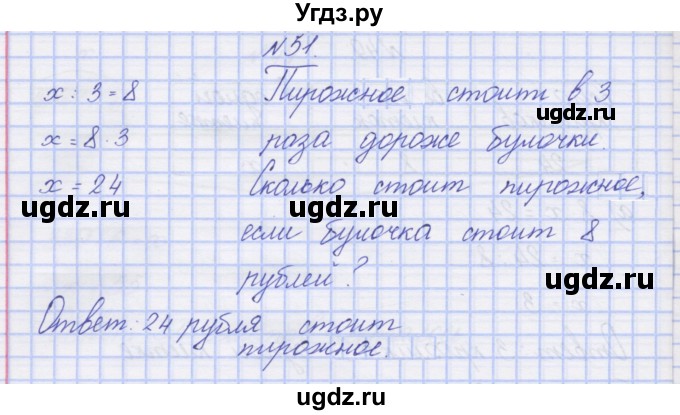 Угдз.ру
N51.
x : 3 = 8
x = 8 · 3
x = 24
Пирожное стоит в 3
раза дороже булочки.
Сколько стоит пирожное,
если булочка стоит 8
рублей?
Ответ: 24 рубля стоит
пирожное.
ugdz.ru
ugdz.ru
ugdz.ru
ugdz.ru
ugdz.ru
ugdz.ru
ugdz.ru